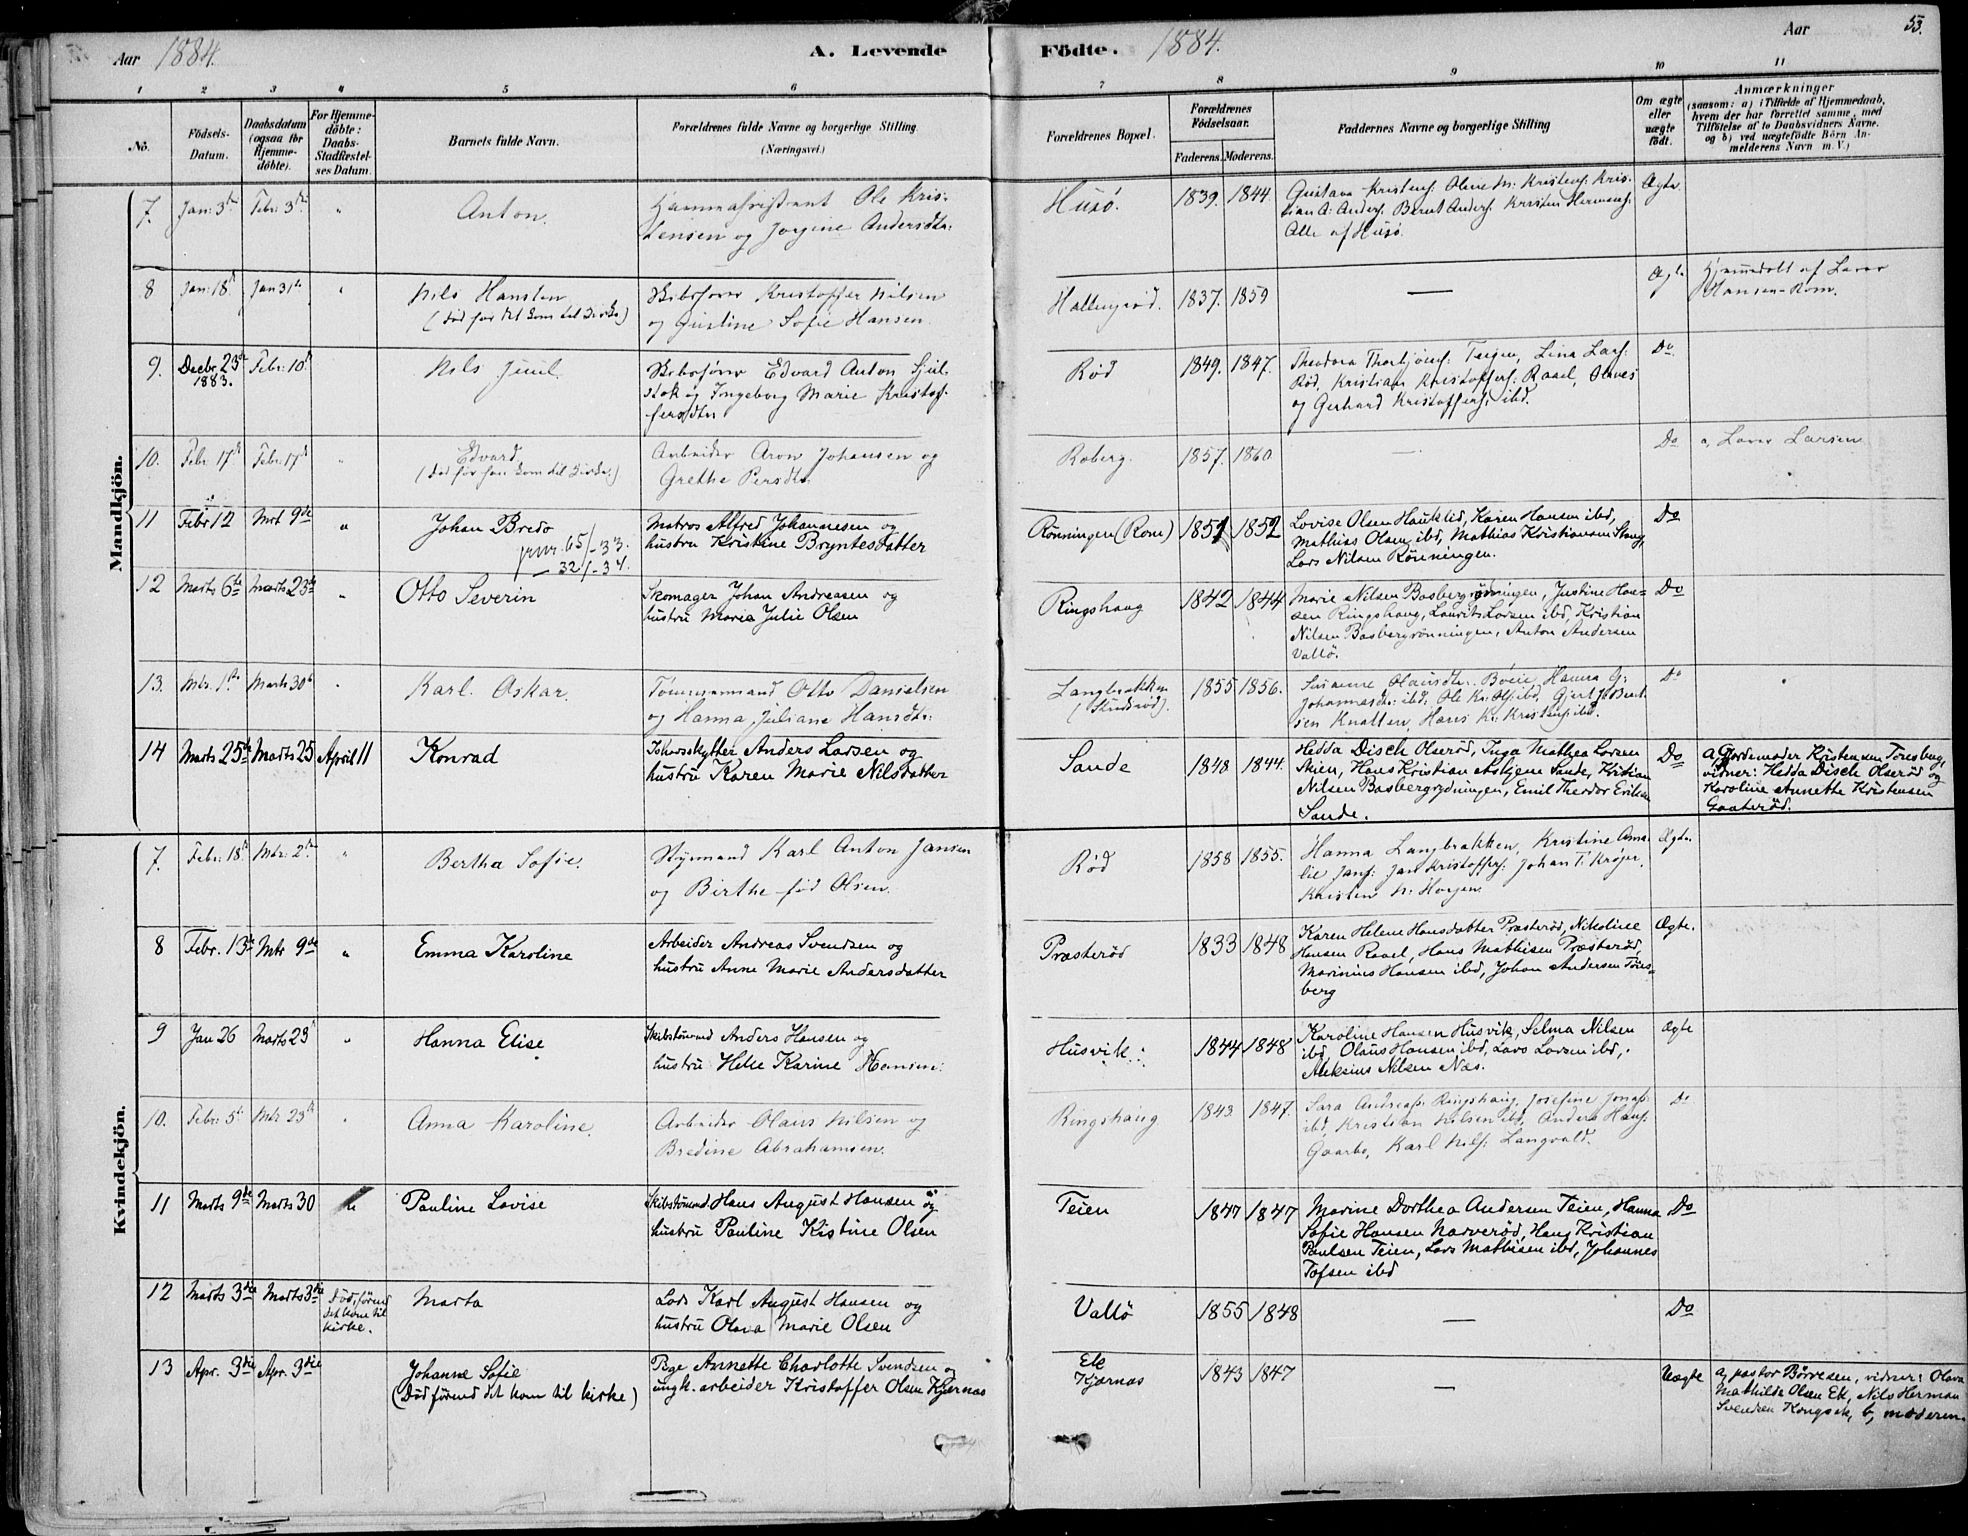 Aar 1884. A. Levende Födte. 1884. Aar 53.
1 2 3 4 5 6 7 8 9 10 11
No. Födsels-Datum. Daabsdatum (ogsaa for Hjemme-döbte). For Hjemme-döbte: Daabs-Stadfæstel-ses Datum. Barnets fulde Navn. Forældrenes fulde Navne og borgerlige Stilling. (Næringsvei.) Forældrenes Bopæl. Forældrenes Födselsaar. Faderens. Moderens. Faddernes Navne og borgerlige Stilling Om ægte eller uægte födt. Anmærkninger (saasom: a) i Tilfælde af Hjemmedaab, hvem der har forrettet samme, med Tilföielse af to Daabsvidners Navne. og b) ved uægtefödte Börn An-melderens Navn m. V.)
Mandkjön.
7. Jan: 3die Febr: 3die " Anton. Ole Kris-
tensen og Jorgine Andersdtr: Husö. 1839. 1844. Gustava Kristens: Olene M: Kristens: Kris-
tian A: Anders: Bernt Anders: Kristen Hermans:
Alle af Husö. Ægte
8 Jan: 18d Jan 31te " Nils Hansten
(död för det kom til kirke) Skibsförer Kristoffer Nilsen
og Gustine Sofie Hansen. 1837. 1859 — Ægte Hjemmedöbt af Laver
Hansen-Rom.
9. Decbr. 23de
1883. Febr: 10d Nils Juul. Skibsförer Edvard Anton Sjul-
stok og Ingeborg Marie Kristof-
fersdtr Röd 1849. 1847. Theodora Thorbjörns: Teigen, Lina Lars:
Röd, Kristian Kristoffers: Raael, Olaves
og Gerhard Kristoffers: ibd. Do
10. Febr 17d Febr: 17d " Edvard
(död för han kom til kirke) Arbeider Aron Johansen og
Grethe Persdtr. Roberg. 1857. 1860 — Do a, Laver Larsen
11 Febr 12 Mrt 9de " Johan Bredo
prnr. 65/-33.
— 32/-34. Matros Alfred Johannesen og
hustru Kristine Bryntesdatter Rönningen (Rom) 1851 1852 Lovise Olsen Hauklid, Karen Hansen ibd,
Mathias Olsen ibd, Mathias Kristiansen Skug,
Lars Nilsen Rönningen. Do
12 Marts 6te Marts 23de " Otto Severin Skomager Johan Andreasen og
hustru Maria Julie Olsen Ringshaug 1842 1844 Marie Nilsen Basbergrydningen, Justine Han-
sen Ringshaug, Laurits Larsen ibd, Kristian
Nilsen Basbergrönningen, Anton Andersen
Vallö. Do
13. Mtr. 1ste Marts 30te " Karl Oskar. Tömmermand Otto Danielsen
og Hanna Juliane Hansdtr: Langbrækken
1855 1856. Susanne Olausdtr. Böeie, Hanna G:
Johannesdtr: ibd: Ole Kr: Ols: ibd,
Knatten, Hans Kr: Kristens: ibd. Do
14 Marts 25de Marts 25 April 11 Konrad Anders Larsen og
hustru Karen Marie Nilsdatter Sande 1848 1844. Hedda Disch Olseröd, Inga Mathea Larsen
Skien, Hans Kristian Asbjörns Sande, Kristian
Nilsen Basbergrydningen, Emil Theodor Eriksen
Sande. Do a, Jordemoder Kristensen Töresberg,
vidner: Hedda Disch Olseröd og
Karoline Annette Kristensen
Gaateröd.
Kvindekjön.
7. Febr: 18de Mtr: 2den " Bertha Sofie. Styrmand Karl Anton Jansen
og Birthe föd Olsen. Röd 1858 1855. Hanna Langbrækken, Kristine Ama-
lie Jans: Jan Kristoffers: Johan T. Kröger,
Kristen N: Horgen. Ægte
8 Febr. 13de Mtr 9de " Emma Karoline Arbeider Andreas Svendsen og
hustru Anne Marie Andersdatter Præsteröd 1833 1848 Karen Helene Hansdatter Præsteröd, Nikoline
Hansen Raael, Hans Mathisen Præsteröd,
Marinius Hansen ibd, Johan Andersen Töres-
berg Ægte.
9 Jan 26 Marts 23 " Hanna Elise Skibstömmd Anders Hansen og
hustru Helle Karine Hansen. Husvik 1844 1848 Karoline Hansen Husvik, Selma Nilsen
ibd, Olaus Hansen ibd, Lars Larsen ibd,
Aleksius Nilsen Næs. Ægte
10. Febr: 5te Mtr 23de " Anna Karoline. Arbeider Olaus Nilsen og
Bredine Abrahamsen. Ringshaug 1843 1847. Sara Andreas: Ringshaug, Josefine Jonas:
ibd, Kristian Nilsen ibd, Anders Hans:
Gaarbo, Karl Nils: Langvald. Do
11 Marts 9de Marts 30 Pauline Lovise Skibstömmd. Hans August Hansen og
hustru Pauline Kistine Olsen Teien 1847 1847 Marine Dorthea Andersen Teien, Hanna
Sofie Hansen Narveröd, Hans Kristian
Paulsen Teien, Lars Mathisen ibd, Johannes
Tofsen ibd Do
12 Marts 3die Marts 3die Död, förend
det kom til
kirke. Marta Lods Karl August Hansen og
hustru Olava Marie Olsen Vallö 1855 1848 — Do
13 Apr. 3die Apr. 3die Johanne Sofie
(Död förend det kom til kirke) Pge Annette Charlotte Svendsen og
ungk. arbeider Kristoffer Olsen Kjærnæs Ek
Kjærnæs 1843 1847 — Uægte a, pastor Börresen, vidner: Olava
Mathilde Olsen Ek, Nils Herman
Svendsen Kongsek, b, moderen.